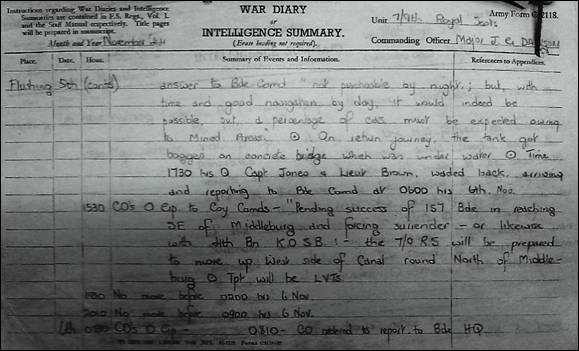 Instructions regarding War Diaries and Intelligence
Summaries are contained in F.S. Regs., Vol. 1.
and the Staff Manual respectively. Title pages
will be prepared in manuscript.
Month and Year November
WAR DIARY
or
INTELLIGENCE SUMMARY.
(Erase heading not required).
Army Form C 2118.
Unit 7/9th Royal Scots
Commanding Officer Major J. G.
Place. Date. Hour. Summary of Events and Information. References to Appendices.
Flushing 5th (contd) answer to Bde Comd "not practicable by night; but, with
time and good navigation by day, it would indeed be
possible but a percentage of cas must be expected owing
to Mined Areas". On return journey, the tank got
bogged on concrete bridge which was under water Time
1730 hrs Capt Jones & Lieut Brown, waded back, arriving
and reporting to Bde Comd at 0600 hrs 6th. Nov.
1530 CO's O Gp. to Coy Comds - "Pending success of 157 Bde in reaching
SE of Middleburg and forcing surrender - or likewise
with 4th Bn K.O.S.B. :- the 7/9 R.S will be prepared
to move up West side of Canal round North of Middle-
burg Tpt will be LVTs
No move before 0200 hrs 6 Nov.
No move before 0900 hrs 6 Nov.
CO's O Gp - 0810 - CO ordered to report to Bde HQ.